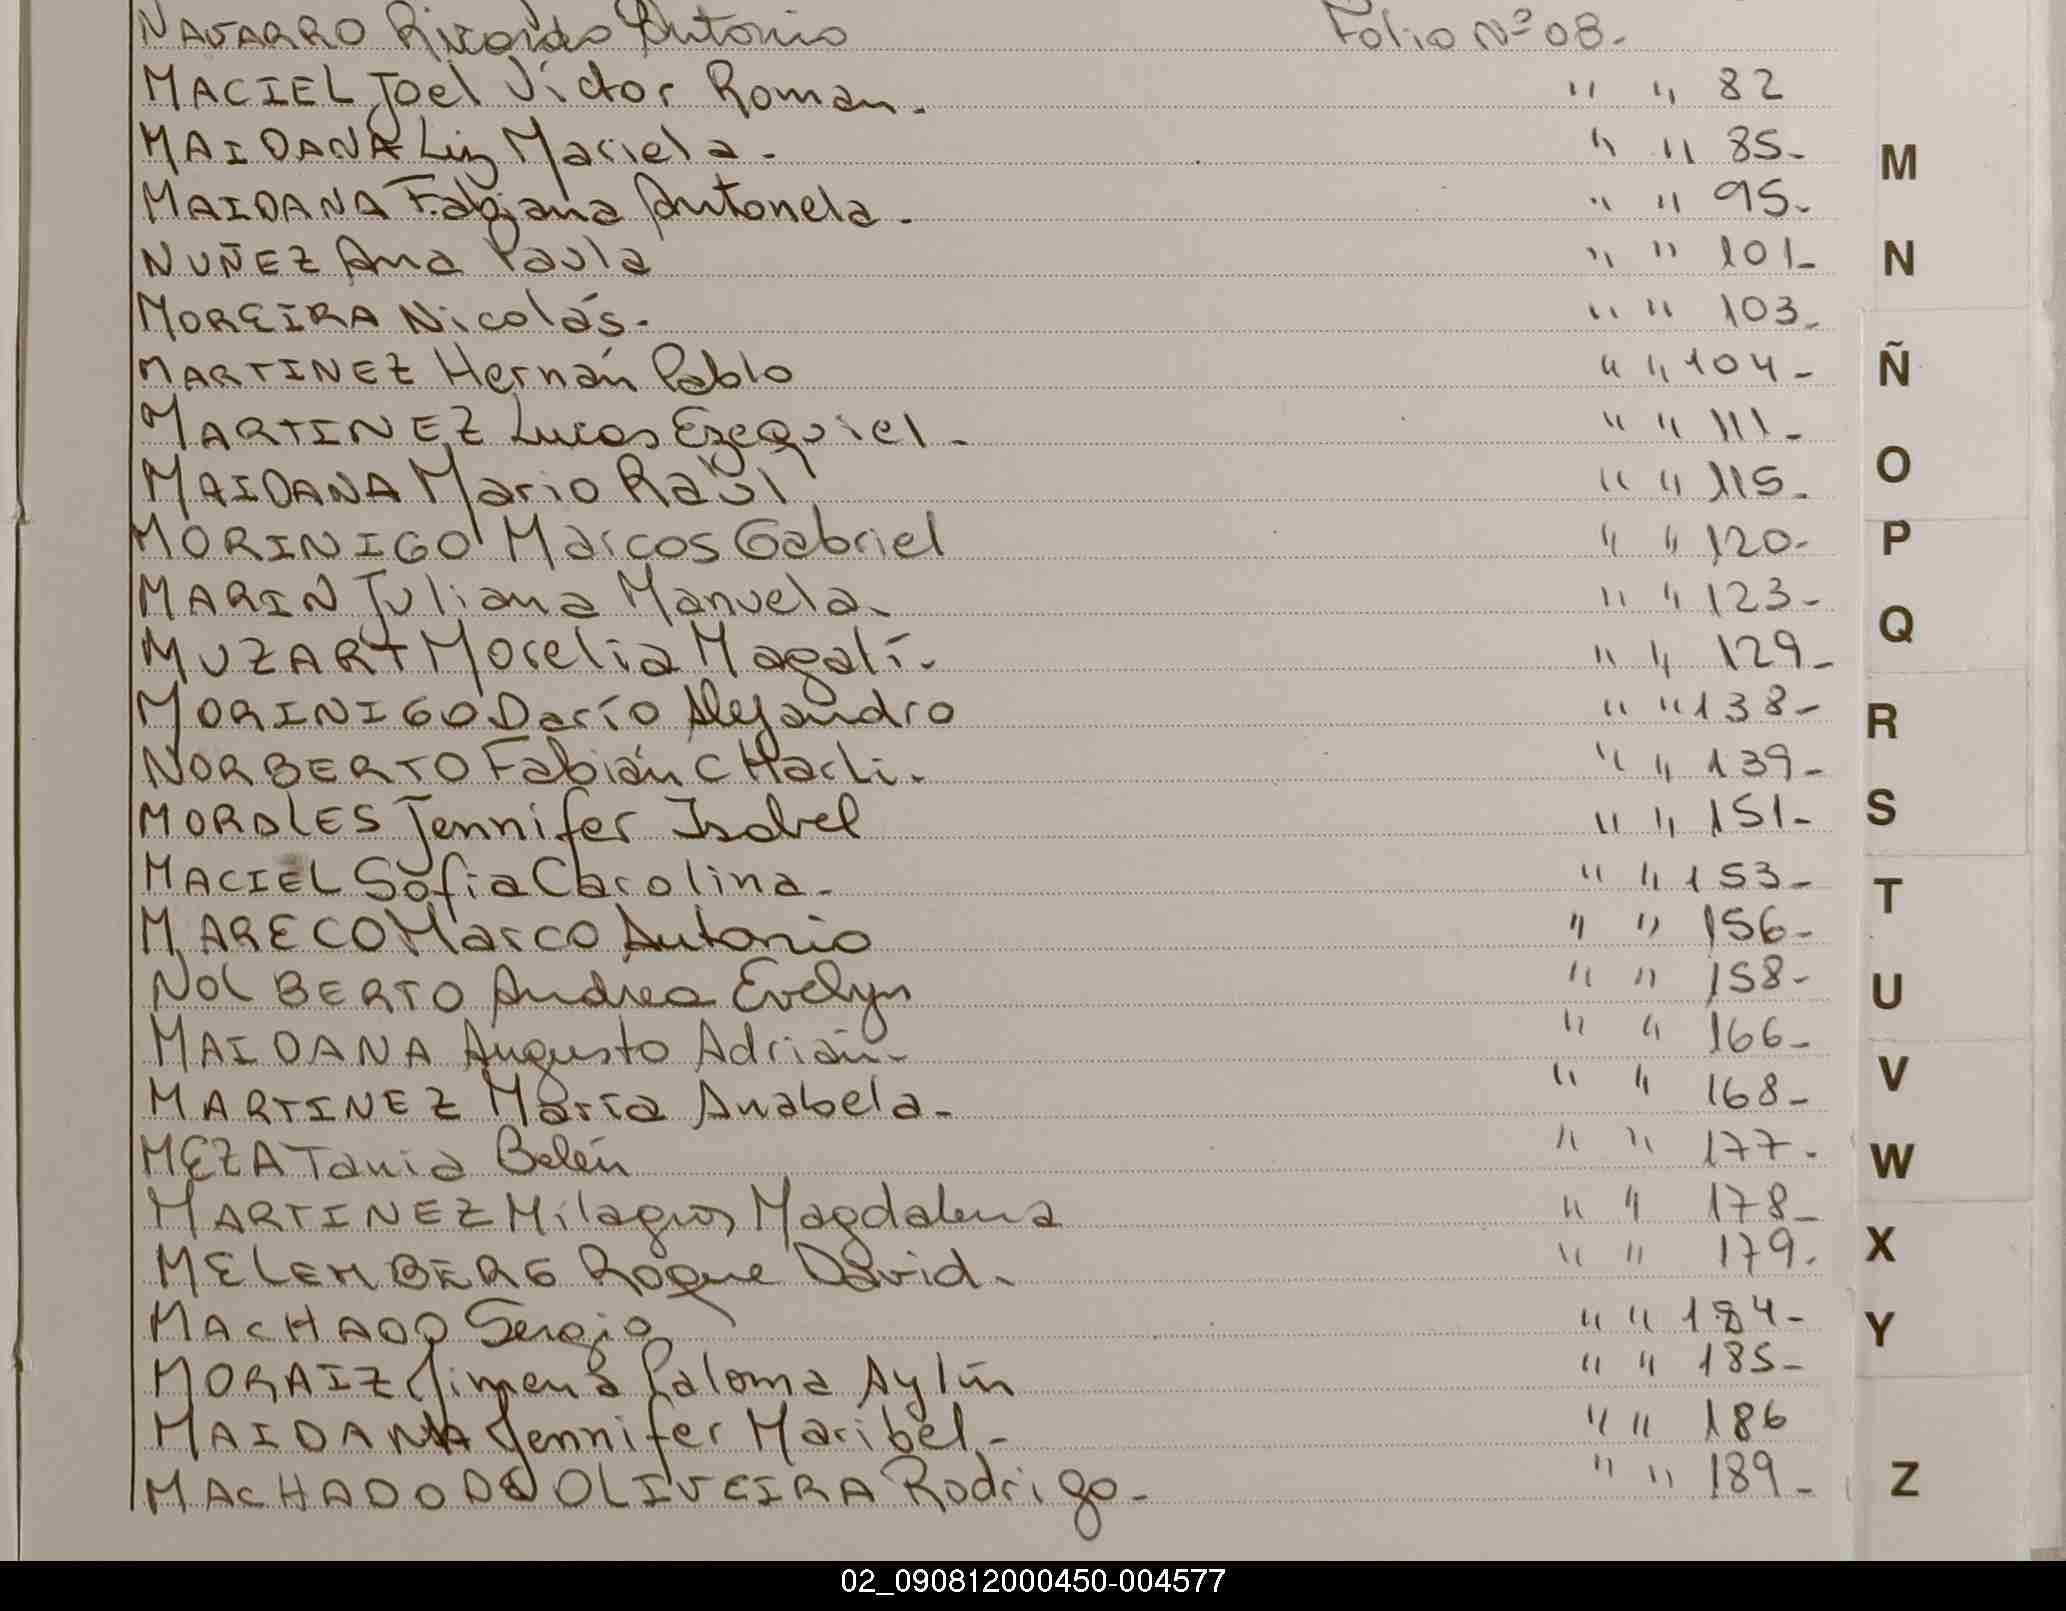 NAVARRO Ricardo Antonio Folio Nº 08.
MACIEL Joel Víctor Roman. " " 82
MAIDANA Liz Mariela. " " 85-
MAIDANA Fabiana Antonela. " " 95-
NUÑEZ Ana Paula " " 101-
MOREIRA Nicolás. " " 103-
MARTINEZ Hernán Pablo " " 104-
MARTINEZ Lucas Ezequiel. " " 111-
MAIDANA Mario Raúl " " 115.
MORINIGO Marcos Gabriel " " 120-
MARIN Juliana Manuela. " " 123-
MUZART Morelia Magalí. " " 129-
MORINIGO Darío Alejandro " " 138-
NORBERTO Fabián CHarli. " " 139-
MORALES Jennifer Isabel " " 151-
MACIEL Sofia Carolina. " " 153-
MARECO Marco Antonio " " 156-
NOLBERTO Andrea Evelyn " " 158-
MAIDANA Augusto Adrián- " " 166-
MARTINEZ María Anabela- " " 168-
MEZA Tania Belén " " 177.
MARTINEZ Milagros Magdalena " " 178-
MELEMBERG Roque David. " " 179.
MACHADO Sergio " " 184-
MORAIZ Jimena Paloma Aylín " " 185-
MAIDANA Jennifer Maribel.- " " 186
MACHADO DE OLIVEIRA Rodrigo- " " 189-
M
N
Ñ
O
P
Q
R
S
T
U
V
W
X
Y
Z
02_090812000450-004577